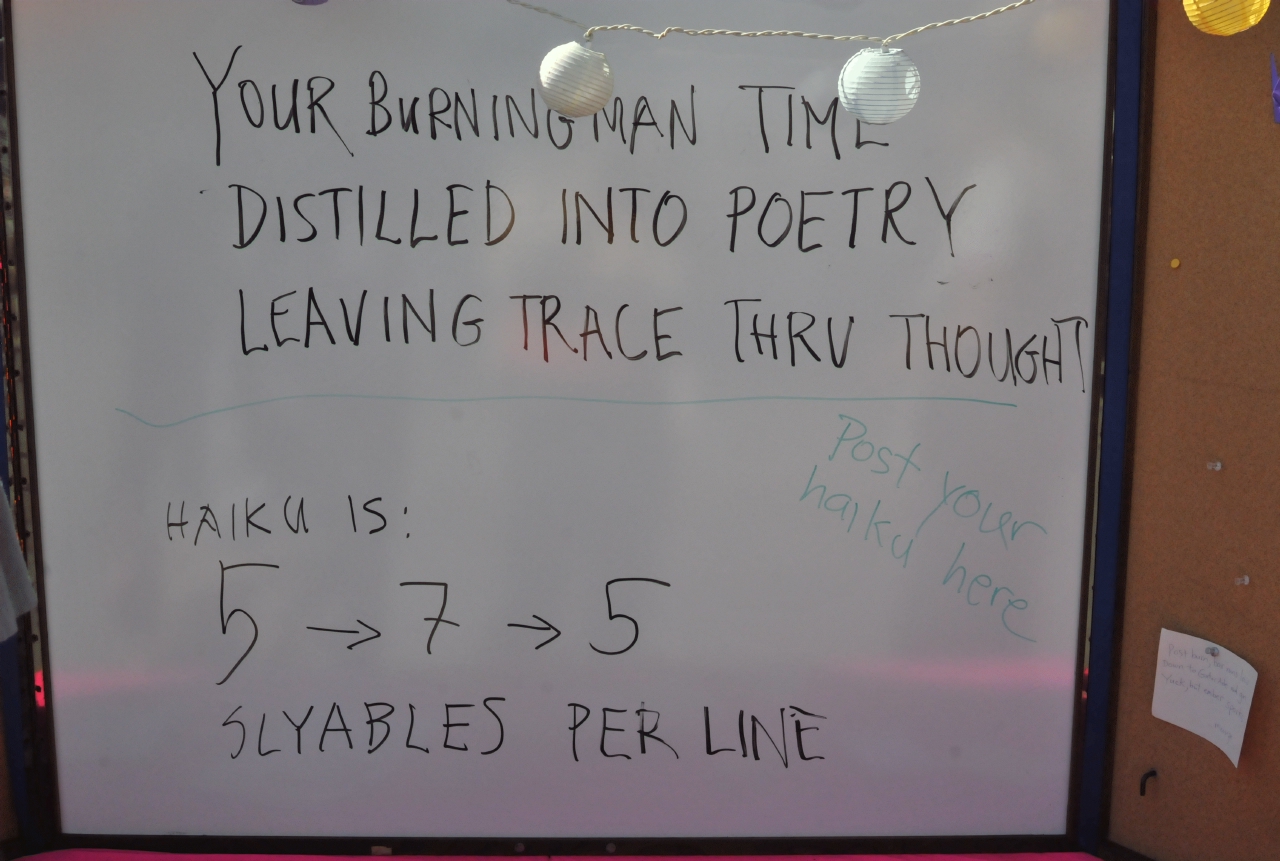 YOUR BURNING MAN TIME
DISTILLED INTO POETRY
LEAVING TRACE THRU THOUGHT
Post your
haiku here
HAIKU IS:
5 → 7 → 5
SLYABLES PER LINE